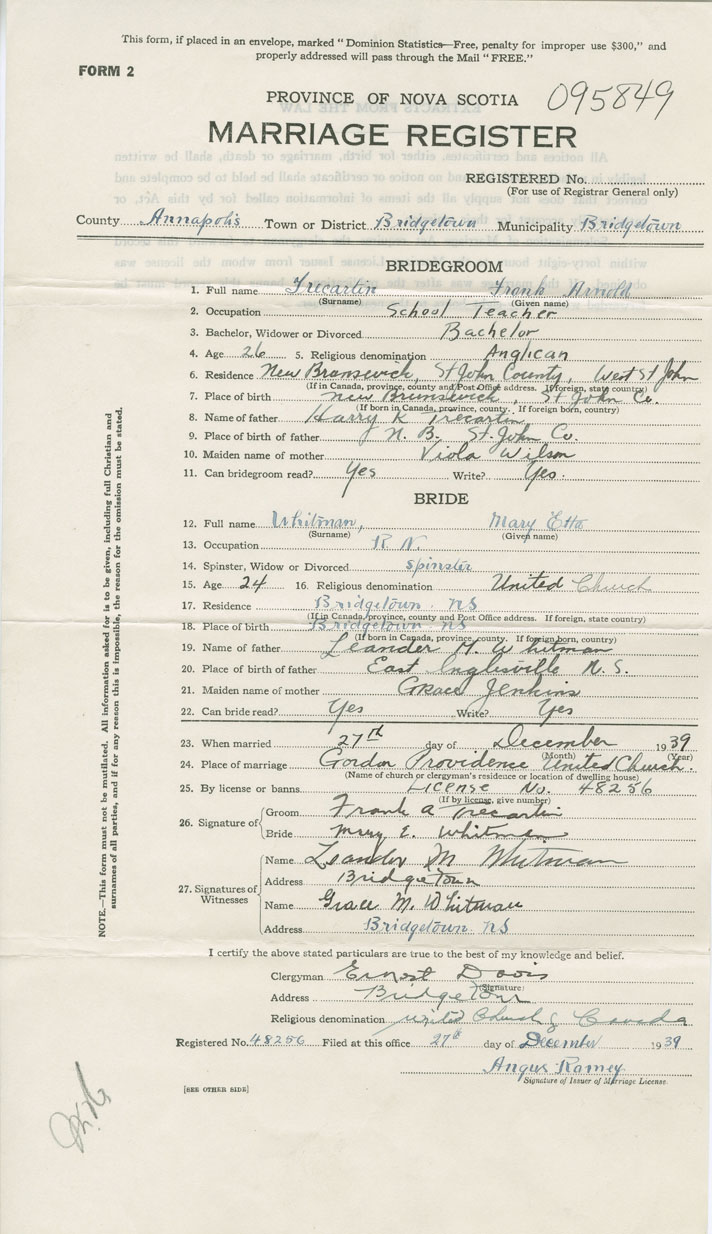 This form, if placed in an envelope, marked "Dominion Statistics—Free, penalty for improper use $300," and
properly addressed will pass through the Mail "FREE."
FORM 2
PROVINCE OF NOVA SCOTIA 095849
MARRIAGE REGISTER
REGISTERED No.
(For use of Registrar General only)
County Annapolis Town or District Bridgetown Municipality Bridgetown
BRIDEGROOM
1. Full name Trecartin Frank Arnold
(Surname) (Given name)
2. Occupation School Teacher
3. Bachelor, Widower or Divorced Bachelor
4. Age 26 5. Religious denomination Anglican
6. Residence New Brunswick, St John County, West St John
(If in Canada, province, county and Post Office address. If foreign, state country)
7. Place of birth New Brunswick, St John Co.
(If born in Canada, province, county. If foreign born, country)
8. Name of father Harry K Trecartin
9. Place of birth of father N. B. St. John Co.
10. Maiden name of mother Viola Wilson
11. Can bridegroom read? Yes Write? Yes.
BRIDE
12. Full name Whitman, Mary Etta
(Surname) (Given name)
13. Occupation R. N.
14. Spinster, Widow or Divorced spinster
15. Age 24 16. Religious denomination United Church
17. Residence Bridgetown NS
(If in Canada, province, county and Post Office address. If foreign, state country)
18. Place of birth Bridgetown NS
(If born in Canada, province, county. If foreign born, country)
19. Name of father Leander M. Whitman
20. Place of birth of father East Inglisville N. S.
21. Maiden name of mother Grace Jenkins
22. Can bride read? Yes Write? Yes
23. When married 27th day of December 1939
(Month) (Year)
24. Place of marriage Gordon Providence United Church.
(Name of church or clergyman's residence or location of dwelling house)
25. By license or banns License No. 48256
(If by license, give number)
26. Signature of
Groom Frank A Trecartin
Bride Mary E. Whitman
27. Signatures of Witnesses
Name Leander M Whitman
Address Bridgetown
Name Grace M. Whitman
Address Bridgetown NS
I certify the above stated particulars are true to the best of my knowledge and belief.
Clergyman Ernest Davis
(Signature)
Address Bridgetown
Religious denomination United Church of Canada
Registered No. 48256 Filed at this office 27th day of December 1939
Angus Ramey
Signature of Issuer of Marriage License.
[SEE OTHER SIDE]
NOTE.—This form must not be mutilated. All information asked for is to be given, including full Christian and
surnames of all parties, and if for any reason this is impossible, the reason for the omission must be stated.